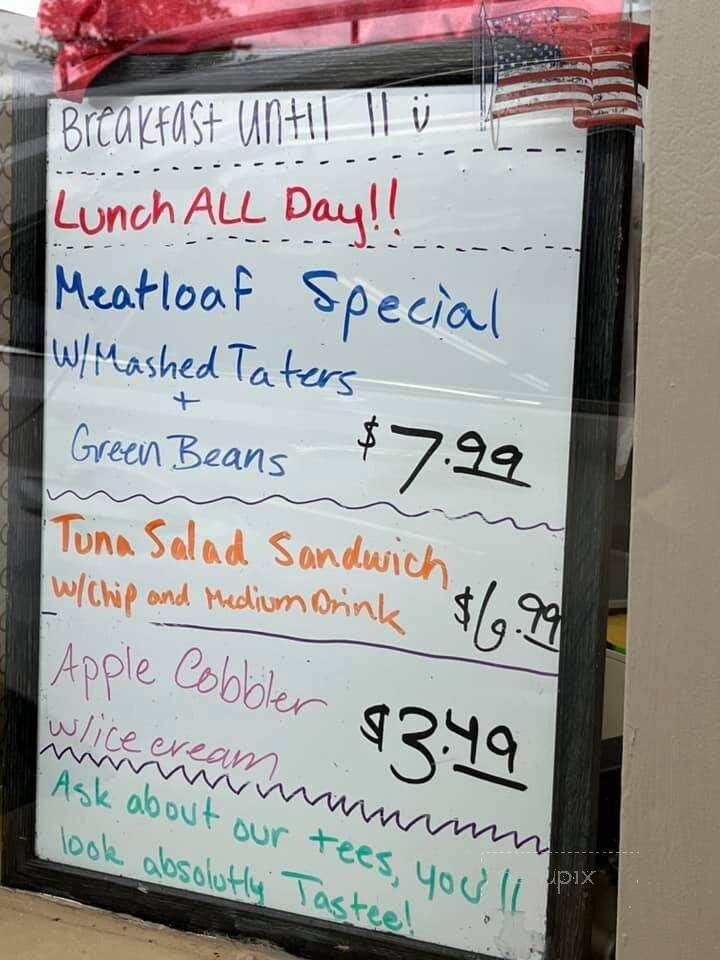 Breakfast until 11 ü
Lunch ALL Day!!
Meatloaf Special
W/Mashed Taters
+
Green Beans $7.99
Tuna Salad Sandwich
W/Chip and Medium Drink $6.99
Apple Cobbler
w/ice cream $3.49
Ask about our tees, you'll
look absolutly Tastee!
upix